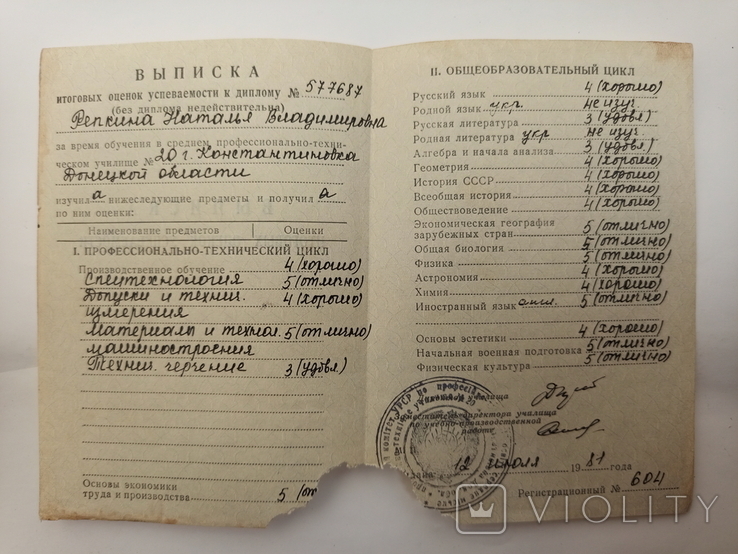 ВЫПИСКА
итоговых оценок успеваемости к диплому № 577687
(без диплома недействительна)
Репкина Наталья Владимировна
за время обучения в среднем профессионально-техни-
ческом училище № 20 г. Константиновка
Донецкой области
изучил а нижеследующие предметы и получил а
по ним оценки:
Наименование предметов Оценки
I. ПРОФЕССИОНАЛЬНО-ТЕХНИЧЕСКИЙ ЦИКЛ
Производственное обучение 4 (хорошо)
Спецтехнология 5 (отлично)
Допуски и технич. 4 (хорошо)
измерения
Материалы и технол. 5 (отлично)
машиностроения
Технич. черчение 3 (удовл)
Основы экономики
труда и производства 5 (от
II. ОБЩЕОБРАЗОВАТЕЛЬНЫЙ ЦИКЛ
Русский язык 4 (хорошо)
Родной язык укр. не изуч.
Русская литература 3 (удовл)
Родная литература укр не изуч.
Алгебра и начала анализа 3 (удовл)
Геометрия 4 (хорошо)
История СССР 4 (хорошо)
Всеобщая история 4 (хорошо)
Обществоведение 4 (хорошо)
Экономическая география
зарубежных стран 5 (отлично)
Общая биология 5 (отлично)
Физика 5 (отлично)
Астрономия 4 (хорошо)
Химия 4 (хорошо)
Иностранный язык англ. 5 (отлично)
Основы эстетики 4 (хорошо)
Начальная военная подготовка 5 (отлично)
Физическая культура 5 (отлично)
училища
Заместитель директора училища
по учебно-производственной
работе
12 июля 1981 года
Регистрационный № 604
VIOLITY